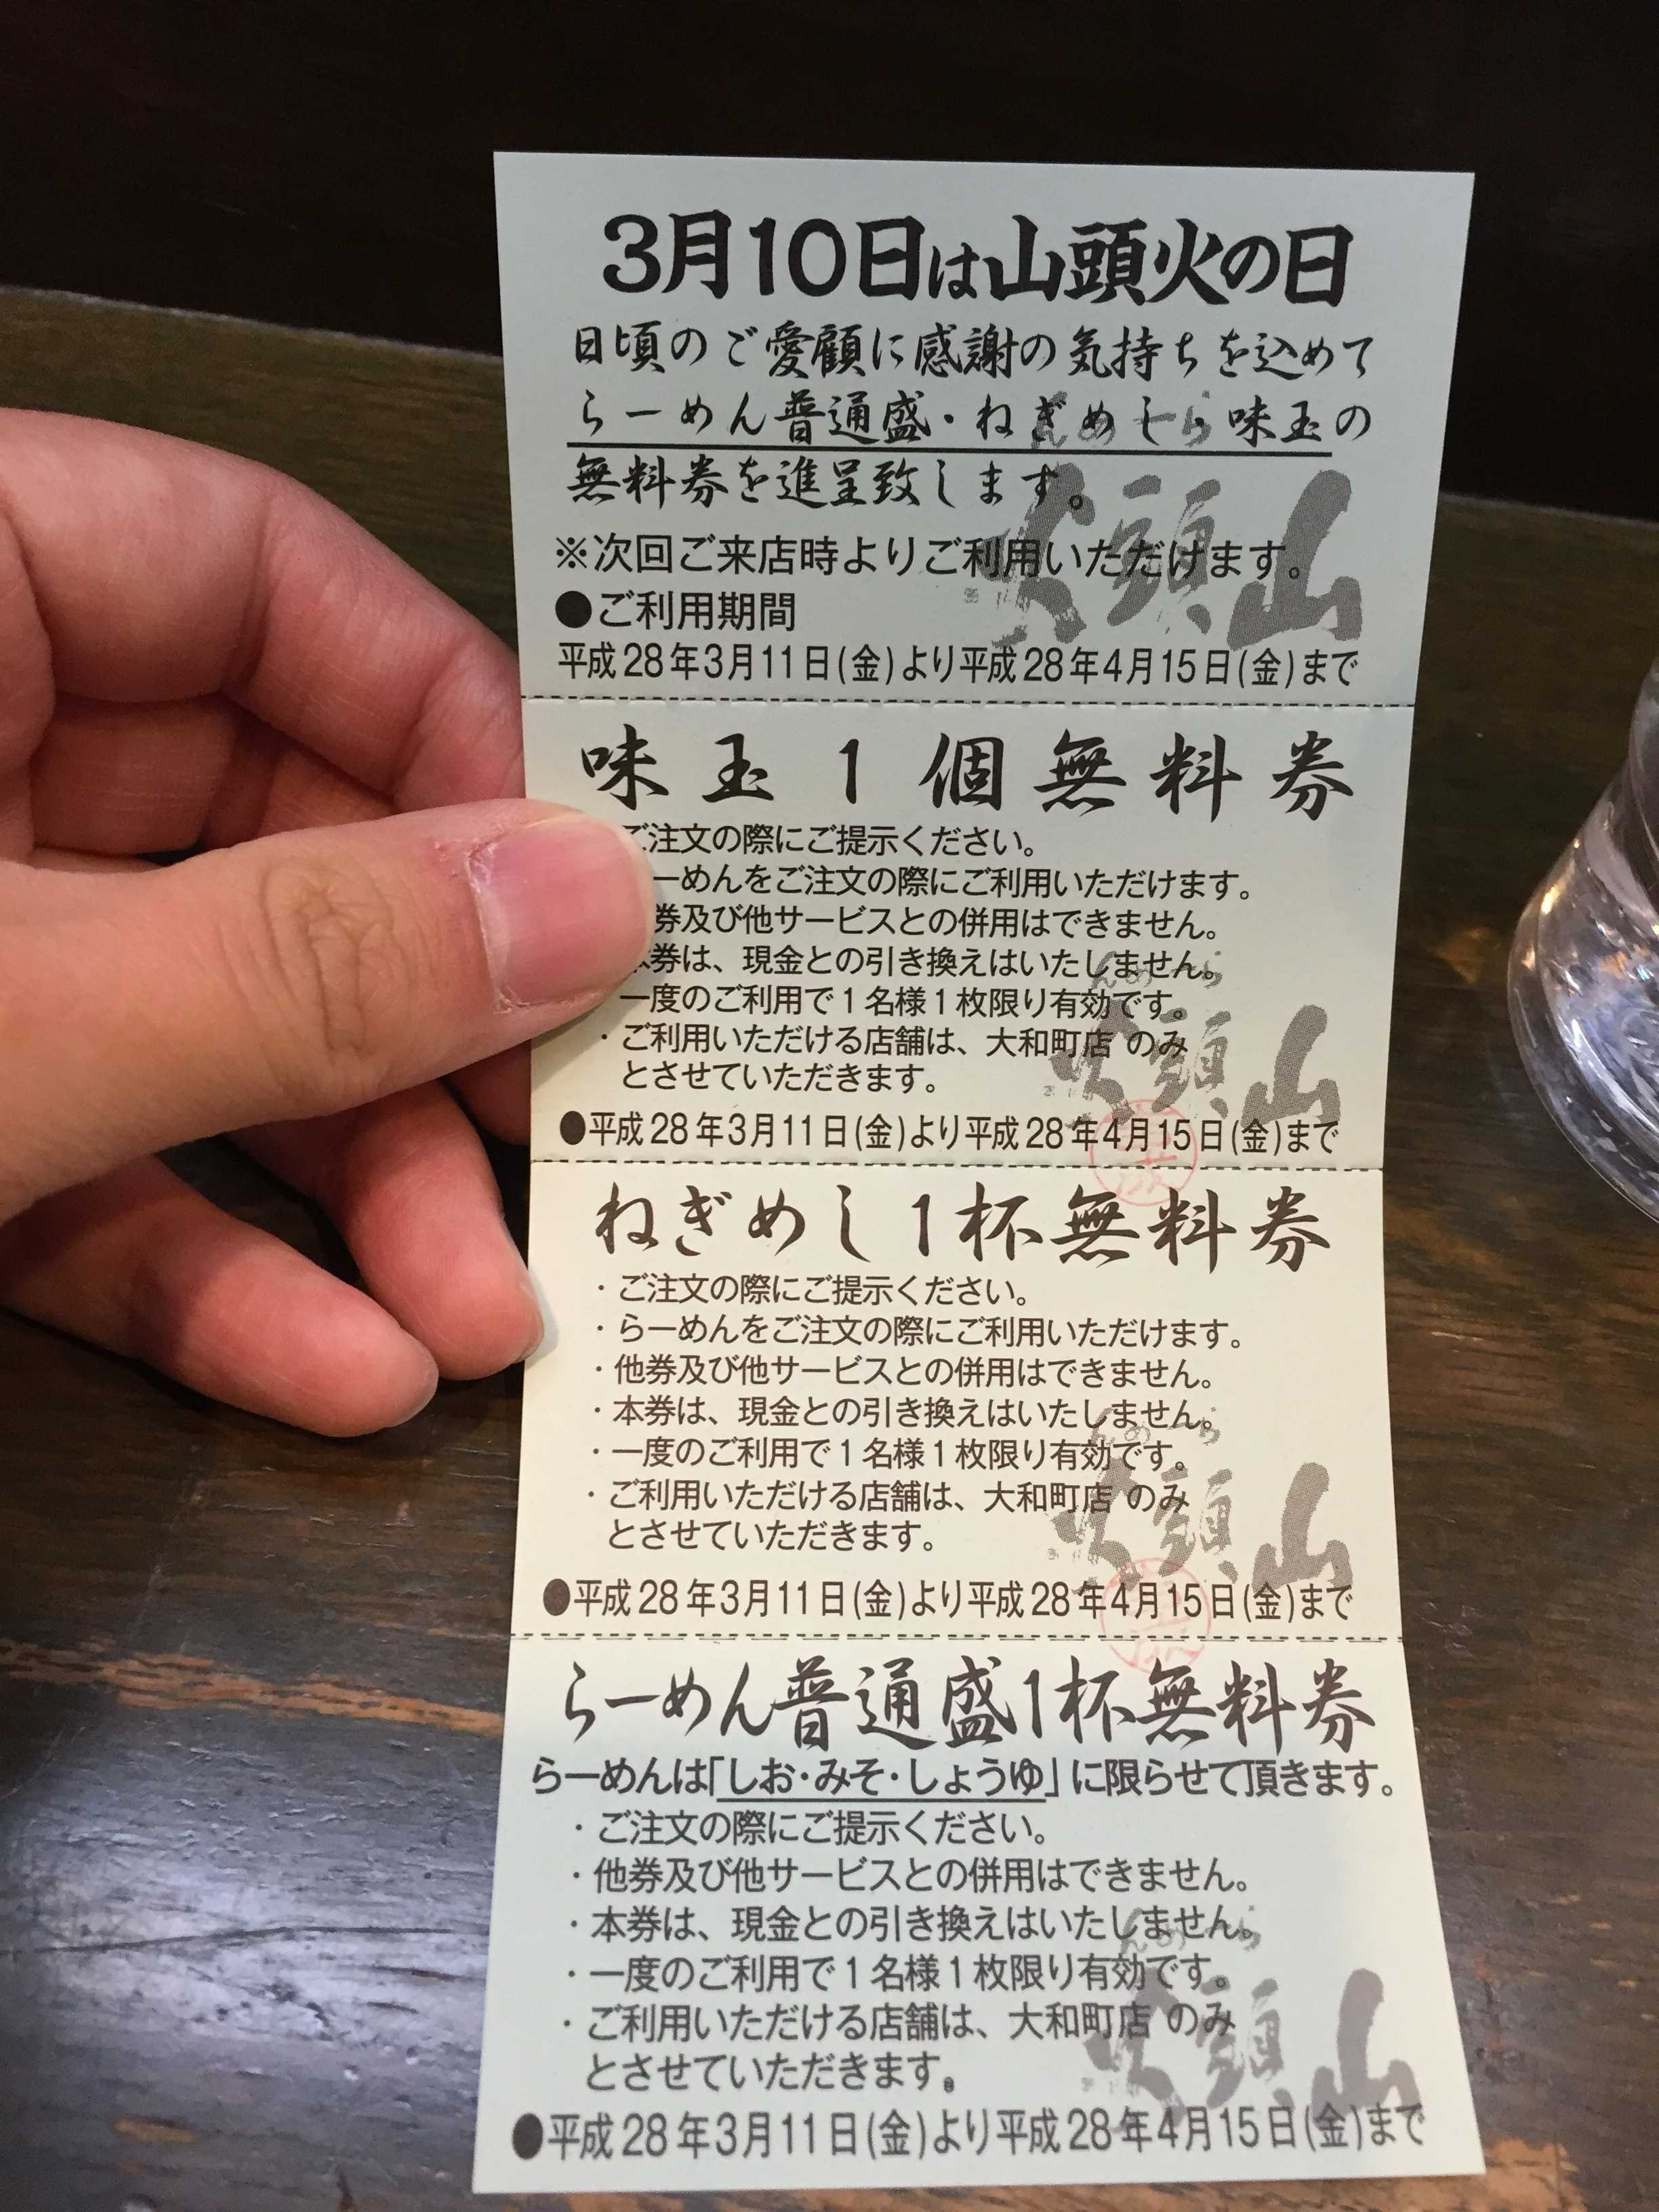 3月10日は山頭火の日
日頃のご愛顧に感謝の気持ちを込めて
らーめん普通盛・ねぎめし・味玉の
無料券を進呈致します。
※次回ご来店時よりご利用いただけます。
●ご利用期間
平成28年3月11日(金)より平成28年4月15日(金)まで
らーめん
山頭火
味玉1個無料券
ご注文の際にご提示ください。
ーめんをご注文の際にご利用いただけます。
券及び他サービスとの併用はできません。
券は、現金との引き換えはいたしません。
一度のご利用で1名様1枚限り有効です。
・ご利用いただける店舗は、大和町店 のみ
とさせていただきます。
●平成28年3月11日(金)より平成28年4月15日(金)まで
らーめん
山頭火
ねぎめし1杯無料券
・ご注文の際にご提示ください。
・らーめんをご注文の際にご利用いただけます。
・他券及び他サービスとの併用はできません。
・本券は、現金との引き換えはいたしません。
・一度のご利用で1名様1枚限り有効です。
・ご利用いただける店舗は、大和町店 のみ
とさせていただきます。
●平成28年3月11日(金)より平成28年4月15日(金)まで
らーめん
山頭火
らーめん普通盛1杯無料券
らーめんは「しお・みそ・しょうゆ」に限らせて頂きます。
・ご注文の際にご提示ください。
・他券及び他サービスとの併用はできません。
・本券は、現金との引き換えはいたしません。
・一度のご利用で1名様1枚限り有効です。
・ご利用いただける店舗は、大和町店 のみ
とさせていただきます。
●平成28年3月11日(金)より平成28年4月15日(金)まで
らーめん
山頭火